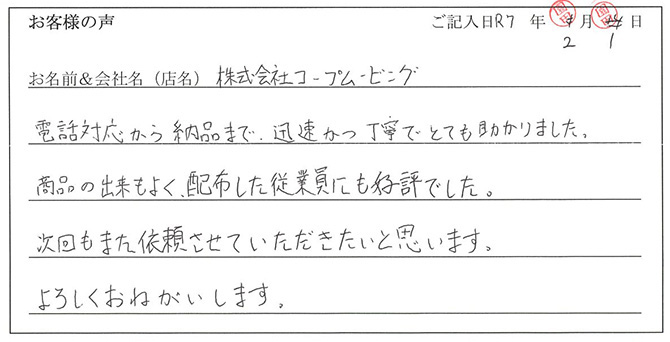 お客様の声 ご記入日R7 年 月 日
2 1
お名前&会社名（店名） 株式会社コープムービング
電話対応から納品まで、迅速かつ丁寧でとても助かりました。
商品の出来もよく、配布した従業員にも好評でした。
次回もまた依頼させていただきたいと思います。
よろしくおねがいします。